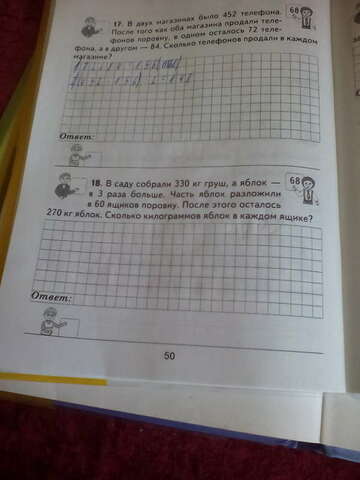 17. В двух магазинах было 452 телефона.
После того как оба магазина продали теле-
фонов поровну, в одном осталось 72 теле-
фона, а в другом — 84. Сколько телефонов продали в каждом
магазине?
68
Ответ:
18. В саду собрали 330 кг груш, а яблок —
в 3 раза больше. Часть яблок разложили
в 60 ящиков поровну. После этого осталось
270 кг яблок. Сколько килограммов яблок в каждом ящике?
68
Ответ:
50